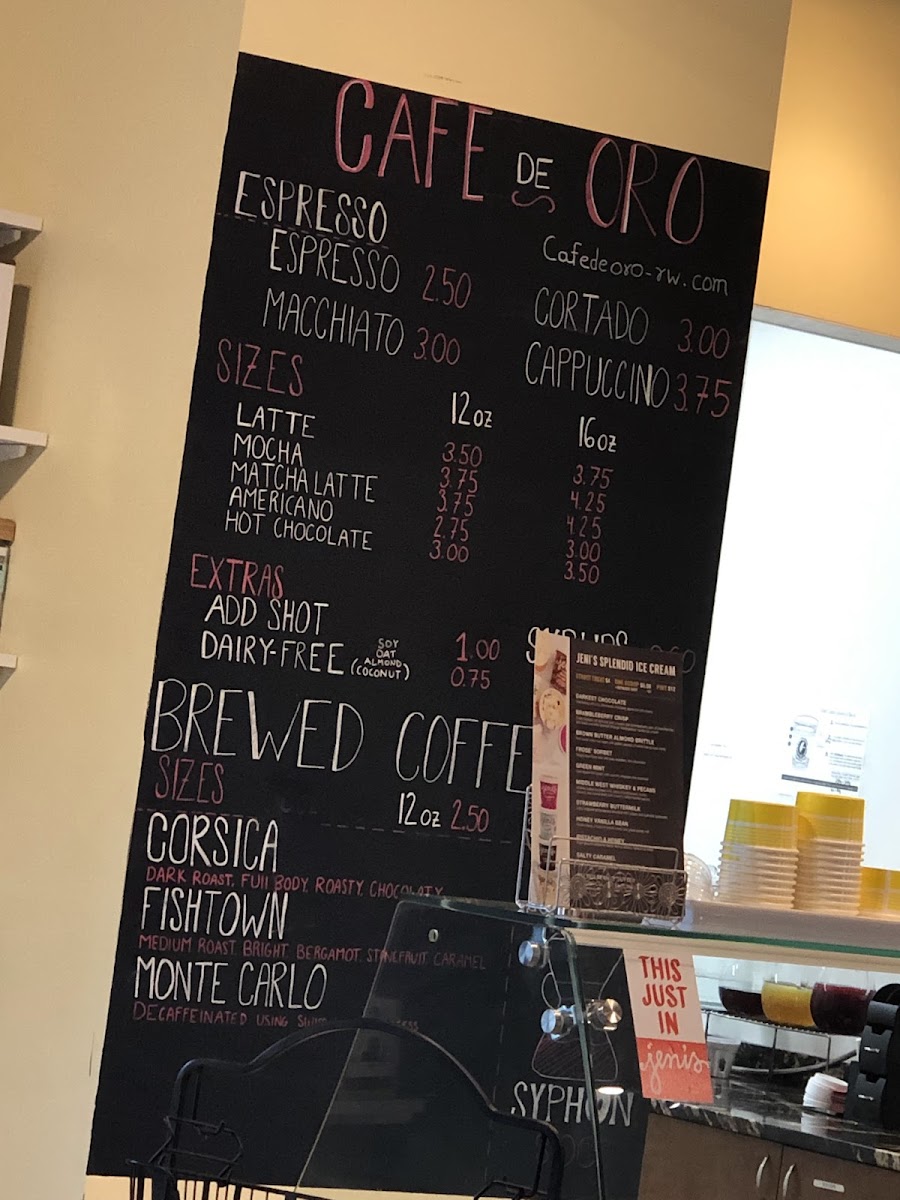 CAFE DE ORO
Cafedeoro-rw.com
ESPRESSO
ESPRESSO 2.50
MACCHIATO 3.00
CORTADO 3.00
CAPPUCCINO 3.75
SIZES 12oz 16oz
LATTE 3.50 3.75
MOCHA 3.75 4.25
MATCHA LATTE 3.75 4.25
AMERICANO 2.75 3.00
HOT CHOCOLATE 3.00 3.50
EXTRAS
ADD SHOT 1.00
DAIRY-FREE (SOY OAT ALMOND COCONUT) 0.75
BREWED COFFE
SIZES 12oz 2.50
CORSICA
DARK ROAST, FULL BODY, ROASTY, CHOCOLATY
FISHTOWN
MEDIUM ROAST. BRIGHT. BERGAMOT. STONEFRUIT. CARAMEL
MONTE CARLO
DECAFFEINATED USING
SYPHON
JENI'S SPLENDID ICE CREAM
DARKEST CHOCOLATE
BRAMBLEBERRY CRISP
BROWN BUTTER ALMOND BRITTLE
FROSÉ SORBET
GREEN MINT
MIDDLE WEST WHISKEY & PECANS
STRAWBERRY BUTTERMILK
HONEY VANILLA BEAN
PISTACHIO & HONEY
SALTY CARAMEL
THIS
JUST
IN
jenis